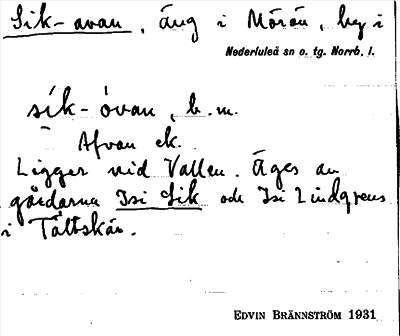 Sik-avan, äng i Mörön, by i
Nederluleå sn o. tg. Norrb. l.
sík-òvan, b. m.
Afvan ek.
Ligger vid Vallen. Äges av
gårdarna Isi Sik och Isi Lindgrens
i Tältskär.
EDVIN BRÄNNSTRÖM 1931